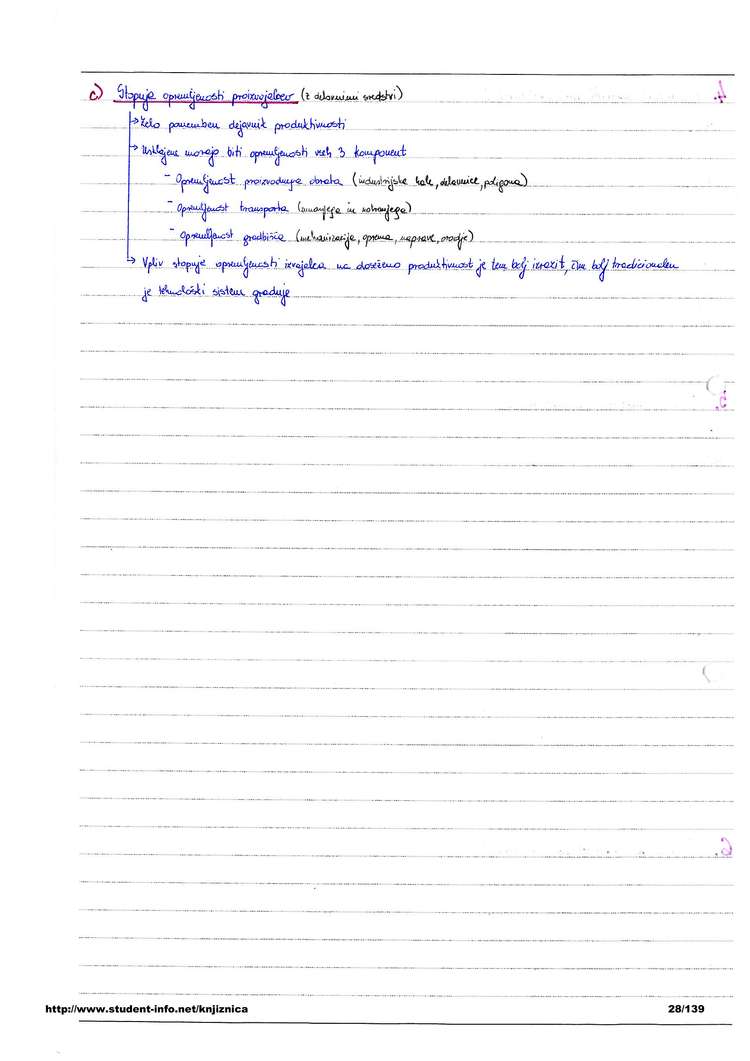 c) Stopnja opremljenosti proizvajalcev (z delovnimi sredstvi)
→ Zelo pomemben dejavnik produktivnosti
→ Usklajene morajo biti opremljenosti vseh 3 komponent
- Opremljenost proizvodnega obrata (industrijske hale, delavnice, poligona)
- Opremljenost transporta (zunanjega in notranjega)
- Opremljenost gradbišča (mehanizacija, oprema, naprave, orodje)
→ Vpliv stopnje opremljenosti izvajalca na doseženo produktivnost je tem bolj izrazit, čim bolj tradicionalen
je tehnološki sistem gradnje
http://www.student-info.net/knjiznica 28/139